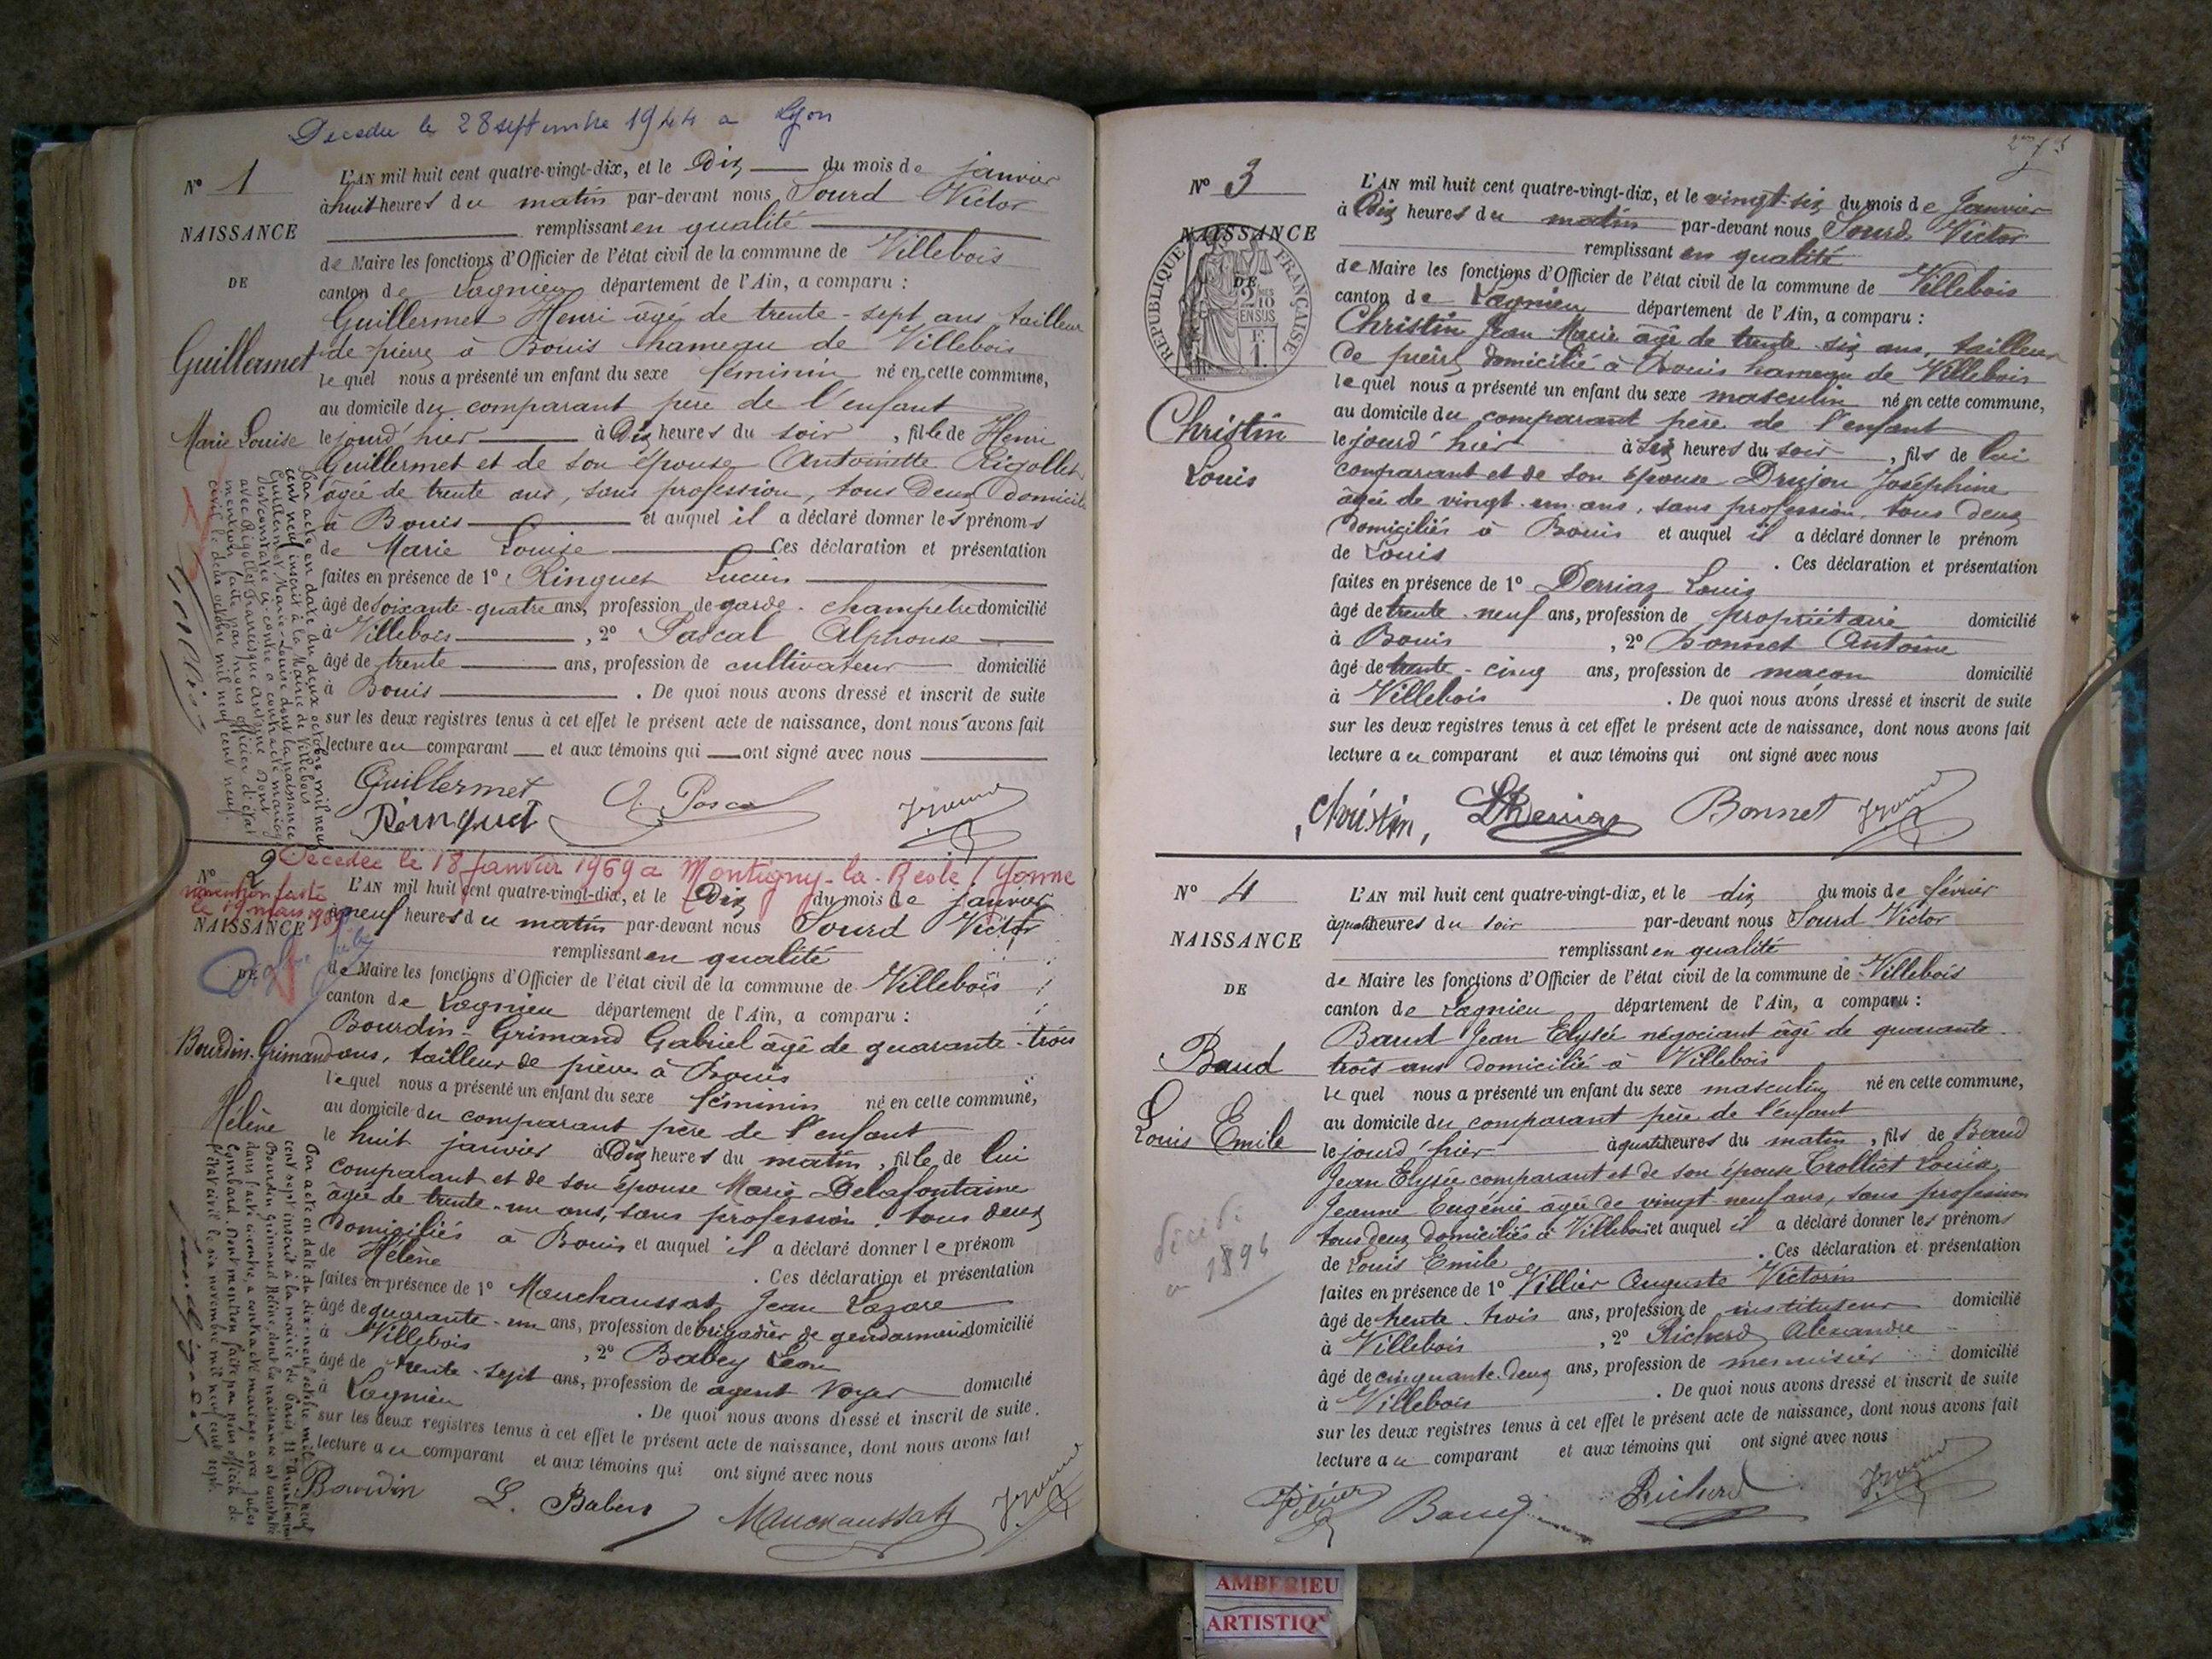 Decedee le 28 septembre 1944 a Lyon
N° 1
NAISSANCE
DE
Guillermet
Marie Louise
L'AN mil huit cent quatre-vingt-dix, et le Dix du mois de janvier
à huit heures du matin par-devant nous Sourd Victor
remplissant en qualité
de Maire les fonctions d'Officier de l'état civil de la commune de Villebois
canton de Lagnieu département de l'Ain, a comparu :
Guillermet Henri âgé de trente-sept ans, tailleur
de pierre à Bouis hameau de Villebois
lequel nous a présenté un enfant du sexe féminin né en cette commune,
au domicile du comparant père de l'enfant
le jourd'hier à Dix heures du soir, fille de Henri
Guillermet et de son épouse Antoinette Rigollet
âgée de trente ans, sans profession, tous deux domicilié
à Bouis et auquel il a déclaré donner les prénoms
de Marie Louise Ces déclaration et présentation
faites en présence de 1° Ringuet Lucien
âgé de soixante-quatre ans, profession de garde-champêtre domicilié
à Villebois, 2° Pascal Alphonse
âgé de trente ans, profession de cultivateur domicilié
à Bouis. De quoi nous avons dressé et inscrit de suite
sur les deux registres tenus à cet effet le présent acte de naissance, dont nous avons fait
lecture au comparant et aux témoins qui ont signé avec nous
Guillermet A. Pascal
Ringuet
Par acte en date du deux octobre mil neuf
cent neuf inscrit à la Mairie de Villebois
Guillermet Marie-Louise dont la naissance
est constatée ci-contre a contracté mariage
avec Rigollet Francisque Antoine dont
mention faite par nous officier d'état
civil le deux octobre mil neuf cent neuf.
Decedee le 18 Janvier 1969 a Montigny-la-Resle / Yonne
N° 2
mention faite
le 17 mars 1969
NAISSANCE
DE
Bourdin-Grimaud
Hélène
L'AN mil huit cent quatre-vingt-dix, et le Dix du mois de janvier
à neuf heures du matin par-devant nous Sourd Victor
remplissant en qualité
de Maire les fonctions d'Officier de l'état civil de la commune de Villebois
canton de Lagnieu département de l'Ain, a comparu :
Bourdin-Grimand Gabriel âgé de quarante-trois
ans, tailleur de pierre à Bouis
lequel nous a présenté un enfant du sexe féminin né en cette commune,
au domicile du comparant père de l'enfant
le huit janvier à Dix heures du matin, fille de lui
comparant et de son épouse Marie Delafontaine
âgée de trente-un ans, sans profession, tous deux
domiciliés à Bouis et auquel il a déclaré donner le prénom
de Hélène. Ces déclaration et présentation
faites en présence de 1° Mauchaussat Jean Lazare
âgé de quarante-un ans, profession de brigadier de gendarmerie domicilié
à Villebois, 2° Babey Léon
âgé de trente-sept ans, profession de agent voyer domicilié
à Lagnieu. De quoi nous avons dressé et inscrit de suite
sur les deux registres tenus à cet effet le présent acte de naissance, dont nous avons fait
lecture au comparant et aux témoins qui ont signé avec nous
Bourdin L. Babey Mauchaussat
N° 3
NAISSANCE
DE
RÉPUBLIQUE FRANÇAISE
Christin
Louis
L'AN mil huit cent quatre-vingt-dix, et le vingt-six du mois de Janvier
à Dix heures du matin par-devant nous Sourd Victor
remplissant en qualité
de Maire les fonctions d'Officier de l'état civil de la commune de Villebois
canton de Lagnieu département de l'Ain, a comparu :
Christin Jean Marie âgé de trente-six ans, tailleur
de pierre domicilié à Bouis hameau de Villebois
lequel nous a présenté un enfant du sexe masculin né en cette commune,
au domicile du comparant père de l'enfant
le jourd'hier à six heures du soir, fils de lui
comparant et de son épouse Drujon Joséphine
âgée de vingt-un ans, sans profession, tous deux
domiciliés à Bouis et auquel il a déclaré donner le prénom
de Louis. Ces déclaration et présentation
faites en présence de 1° Derriaz Louis
âgé de trente-neuf ans, profession de propriétaire domicilié
à Bouis, 2° Bonnet Antoine
âgé de trente-cinq ans, profession de maçon domicilié
à Villebois. De quoi nous avons dressé et inscrit de suite
sur les deux registres tenus à cet effet le présent acte de naissance, dont nous avons fait
lecture au comparant et aux témoins qui ont signé avec nous
Christin, LDerriaz Bonnet
N° 4
NAISSANCE
DE
Baud
Louis Emile
décédé
en 1894
L'AN mil huit cent quatre-vingt-dix, et le dix du mois de février
à quatre heures du soir par-devant nous Sourd Victor
remplissant en qualité
de Maire les fonctions d'Officier de l'état civil de la commune de Villebois
canton de Lagnieu département de l'Ain, a comparu :
Baud Jean Elysée négociant âgé de quarante-
trois ans domicilié à Villebois
lequel nous a présenté un enfant du sexe masculin né en cette commune,
au domicile du comparant père de l'enfant
le jourd'hier à quatre heures du matin, fils de Baud
Jean Elysée comparant et de son épouse Trolliet Louise
Jeanne Eugénie âgée de vingt-neuf ans, sans profession
tous deux domiciliés à Villebois et auquel il a déclaré donner les prénoms
de Louis Emile. Ces déclaration et présentation
faites en présence de 1° Villier Auguste Victorin
âgé de trente-trois ans, profession de instituteur domicilié
à Villebois, 2° Richerd Alexandre
âgé de cinquante-deux ans, profession de menuisier domicilié
à Villebois. De quoi nous avons dressé et inscrit de suite
sur les deux registres tenus à cet effet le présent acte de naissance, dont nous avons fait
lecture au comparant et aux témoins qui ont signé avec nous
Villier Baud Richerd
AMBERIEU
ARTISTIQ